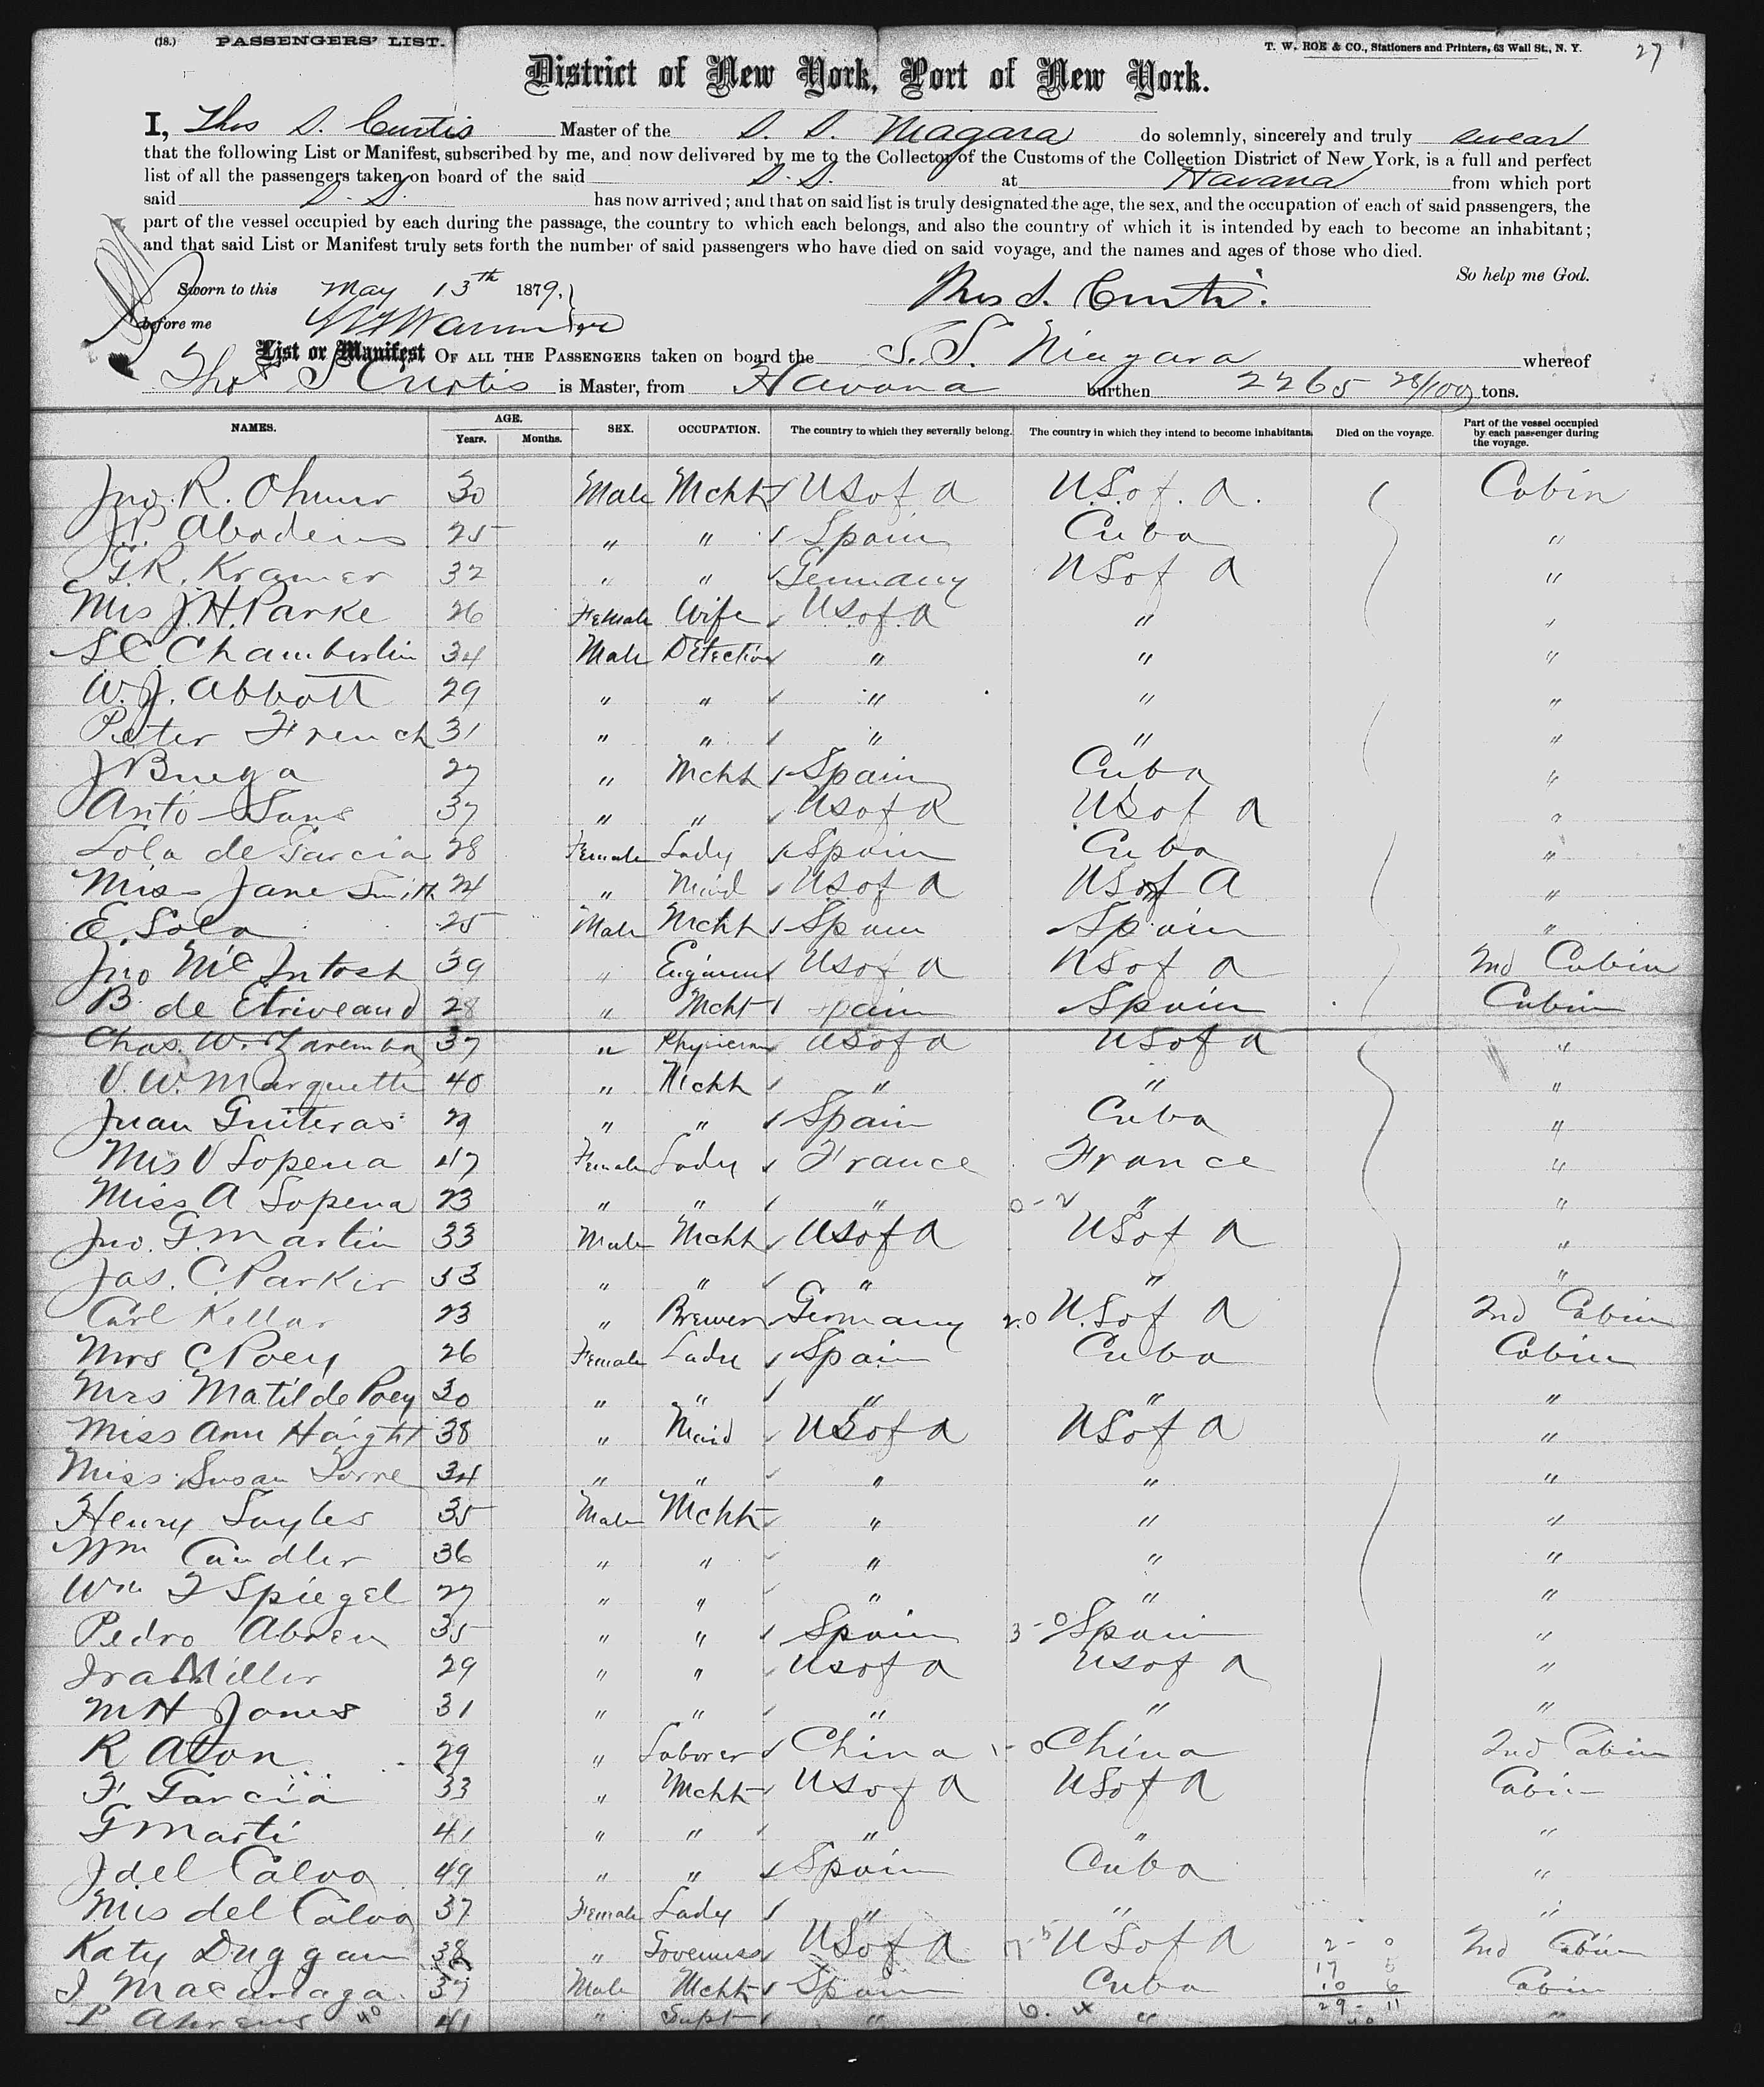 (18.) PASSENGERS' LIST. T. W. ROE & CO., Stationers and Printers, 63 Wall St., N. Y. 27
District of New York, Port of New York.
I, Thos S. Curtis Master of the S. S. Niagara do solemnly, sincerely and truly swear
that the following List or Manifest, subscribed by me, and now delivered by me to the Collector of the Customs of the Collection District of New York, is a full and perfect
list of all the passengers taken on board of the said S. S. at Havana from which port
said S. S. has now arrived; and that on said list is truly designated the age, the sex, and the occupation of each of said passengers, the
part of the vessel occupied by each during the passage, the country to which each belongs, and also the country of which it is intended by each to become an inhabitant;
and that said List or Manifest truly sets forth the number of said passengers who have died on said voyage, and the names and ages of those who died.
So help me God.
Sworn to this May 13th 1879, Thos S. Curtis.
before me
List or Manifest OF ALL THE PASSENGERS taken on board the S. S. Niagara whereof
Thos S Curtis is Master, from Havana burthen 2265 28/100 tons.
NAMES. AGE. Years. Months. SEX. OCCUPATION. The country to which they severally belong. The country in which they intend to become inhabitants. Died on the voyage. Part of the vessel occupied by each passenger during the voyage.
Jno. R. 30 Male Mcht U S of A U.S. of. A. Cabin
J.P. 25 " " Spain Cuba "
G.R. Kramer 32 " " Germany U S of A "
Mrs J. H. Parke 26 Female Wife U S of A " "
S C Chamberlin 34 Male Detective " " "
W. J. Abbott 29 " " " " "
Peter French 31 " " " " "
J Buega 27 " Mcht Spain Cuba "
Anto Sans 37 " " U S of A U S of A "
Lola de Garcia 28 Female Lady Spain Cuba "
Miss Jane Smith 24 " Maid U S of A U S of A "
E. Sola 25 Male Mcht Spain Spain "
Jno McIntosh 39 " Engineer U S of A U S of A 2nd Cabin
B. de 28 " Mcht Spain Spain Cabin
Chas. W. Zaremba 37 " Physician U S of A U S of A "
V. W. Marquette 40 " Mcht " " "
Juan Guiteras 29 " " Spain Cuba "
Mrs V Sopena 47 Female Lady France France "
Miss A Sopena 23 " " " 0-2 " "
Jno. G. Martin 33 Male Mcht U S of A U S of A "
Jas. C Parker 33 " " " " "
Carl Kellar 23 " Brewer Germany 2.0 U. S of A 2nd Cabin
Mrs C Poey 26 Female Lady Spain Cuba Cabin
Mrs Matilde Poey 30 " " " " "
Miss Ann Haight 38 " Maid U S of A U S of A "
Miss Susan Torre 34 " " " " "
Henry Sayles 35 Male Mcht " " "
Wm Candler 36 " " " " "
Wm T Spiegel 27 " " " " "
Pedro Abreu 35 " " Spain 3-0 Spain "
Ira Miller 29 " " U S of A U S of A "
M H Jones 31 " " " " "
R Aton 29 " Laborer China 1-0 China 2nd Cabin
F Garcia 33 " Mcht U S of A U S of A Cabin
G Marti 41 " " " " "
J del Calvo 49 " " Spain Cuba "
Mrs del Calvo 37 Female Lady " " "
Katy Duggan 38 " Governess U S of A 17-5 U S of A 2-0 2nd Cabin
17 5
I Macuriaga 37 Male Mcht Spain Cuba 10 6 Cabin
P Ahrens 40 41 " Supt " 6. x " 29-11 "
40